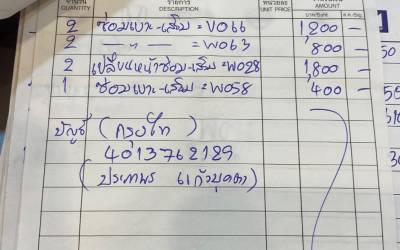 จำนวน รายการ หน่วยละ จำนวนเงิน
QUANTITY DESCRIPTION UNIT PRICE AMOUNT
บาท/Baht ส.ต./Stg.
2 ซ่อมเบาะ-เสริม = V066 1,200 -
2 — " — = W063 800 -
2 เปลี่ยนหน้าซ่อม-เสริม = W028 1,800 -
1 ซ่อมเบาะ-เสริม = W058 400 -
บัญชี (กรุงไทย)
4013762129
(ประเทพร แก้วบุดดา)